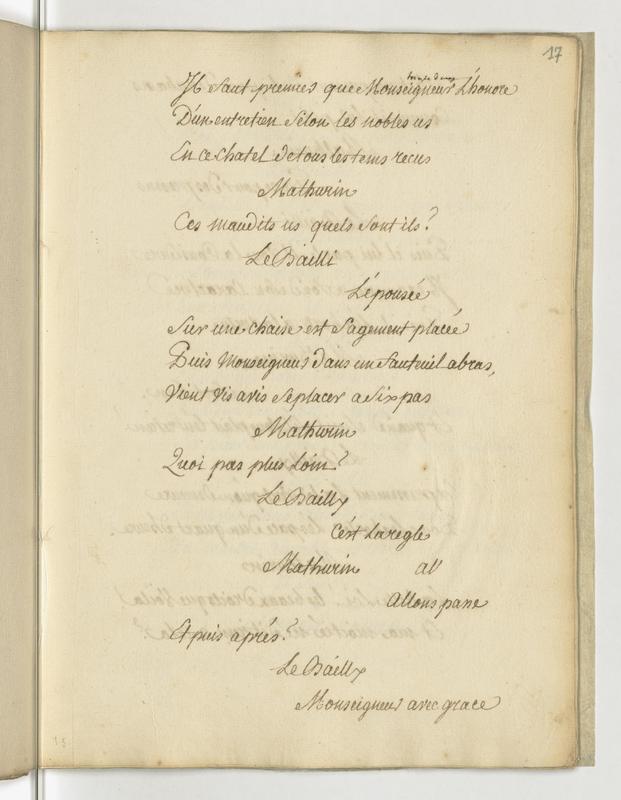 17
Il faut premier que Monseigneur L'honore
D'un entretien Selon les nobles us
En ce chatel de tous les tems recus
Mathurin
Ces maudits us quels sont ils?
Le Bailli
L'épousée
Sur une chaise est Sagement placée
Puis Monseigneur dans un fauteuil a bras,
Vient vis avis se placer a Six pas
Mathurin
Quoi pas plus Loin?
Le Bailly
C'est La regle
Mathurin all
Allons passe
Et puis aprés?
Le Bailly
Monseigneur avec grace